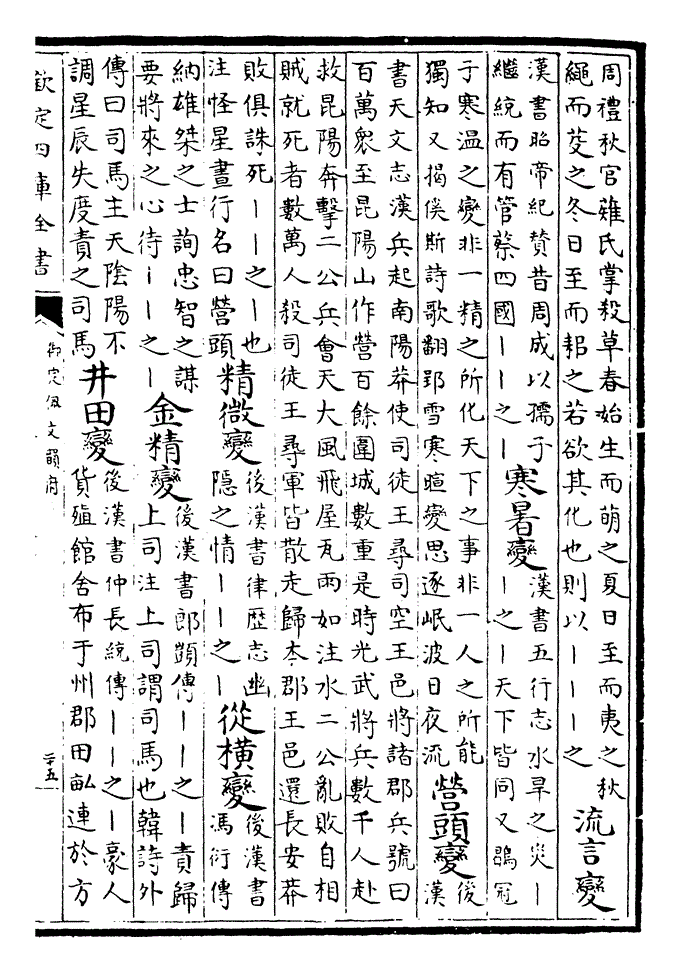 周禮秋官薙氏掌殺草春始生而萌之夏日至而夷之秋
繩而芟之冬日至而耜之若欲其化也則以丨丨丨之
流言變
漢書昭帝紀贊昔周成以孺子
繼統而有管蔡四國丨丨之丨
寒暑變
漢書五行志水旱之災丨
丨之丨天下皆同又鶡冠
子寒温之變非一精之所化天下之事非一人之所能
獨知又揭傒斯詩歌翻郢雪寒暄變思逐岷波日夜流
營頭變
後
漢
書天文志漢兵起南陽莽使司徒王尋司空王邑將諸郡兵號曰
百萬衆至昆陽山作營百餘圍城數重是時光武將兵數千人赴
救昆陽奔擊二公兵會天大風飛屋瓦雨如注水二公亂敗自相
賊就死者數萬人殺司徒王尋軍皆散走歸本郡王邑還長安莽
敗俱誅死丨丨之丨也
注怪星晝行名曰營頭
精微變
後漢書律歷志幽
隱之情丨丨之丨
從橫變
後漢書
馮衍傳
納雄桀之士詢忠智之謀
要將來之心待丨丨之丨
金精變
後漢書郎顗傳丨丨之丨責歸
上司注上司謂司馬也韓詩外
傳曰司馬主天陰陽不
調星辰失度責之司馬
井田變
後漢書仲長統傳丨丨之丨豪人
貨殖館舍布于州郡田畝連於方
欽定四庫全書
御定佩文韻府
二十五